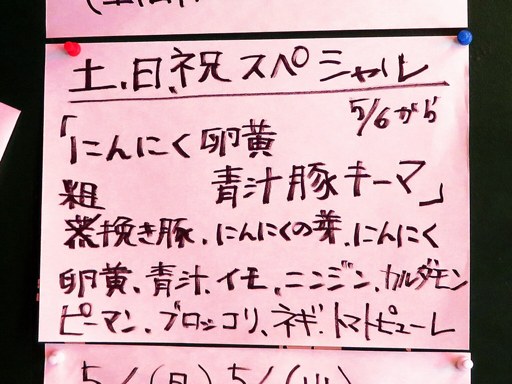 土、日、祝 スペシャル
5/6から
「にんにく卵黄
青汁豚キーマ」
粗挽き豚、にんにくの芽、にんにく
卵黄、青汁、イモ、ニンジン、カルダモン
ピーマン、ブロッコリ、ネギ、トマトピューレ
5/(日) 5/(火)